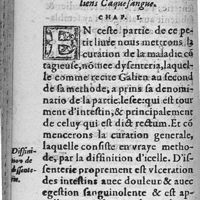 liens Caquesangue.
CHAP. I.
EN ceste partie de ce pe
tit liure nous mettrons, la
curation de la maladie cō
tagieuse, nōmee dysenteria, laquel-
le comme recite Galien au second
de sa methode, a prins sa denomi-
natiō de la partie lesee: qui est tout
plement d'intestin, & principalement
de celuy qui est dict rectum. Et cō
mencerons la curation generale,
laquelle consiste en vraye metho-
de, par la diffinition d'icelle. D'is-
senterie proprement est vlceration
des intestins auec douleur & auec
egestion sanguinolente & est ap-
Diffini-
tion de
dissente-
rie.